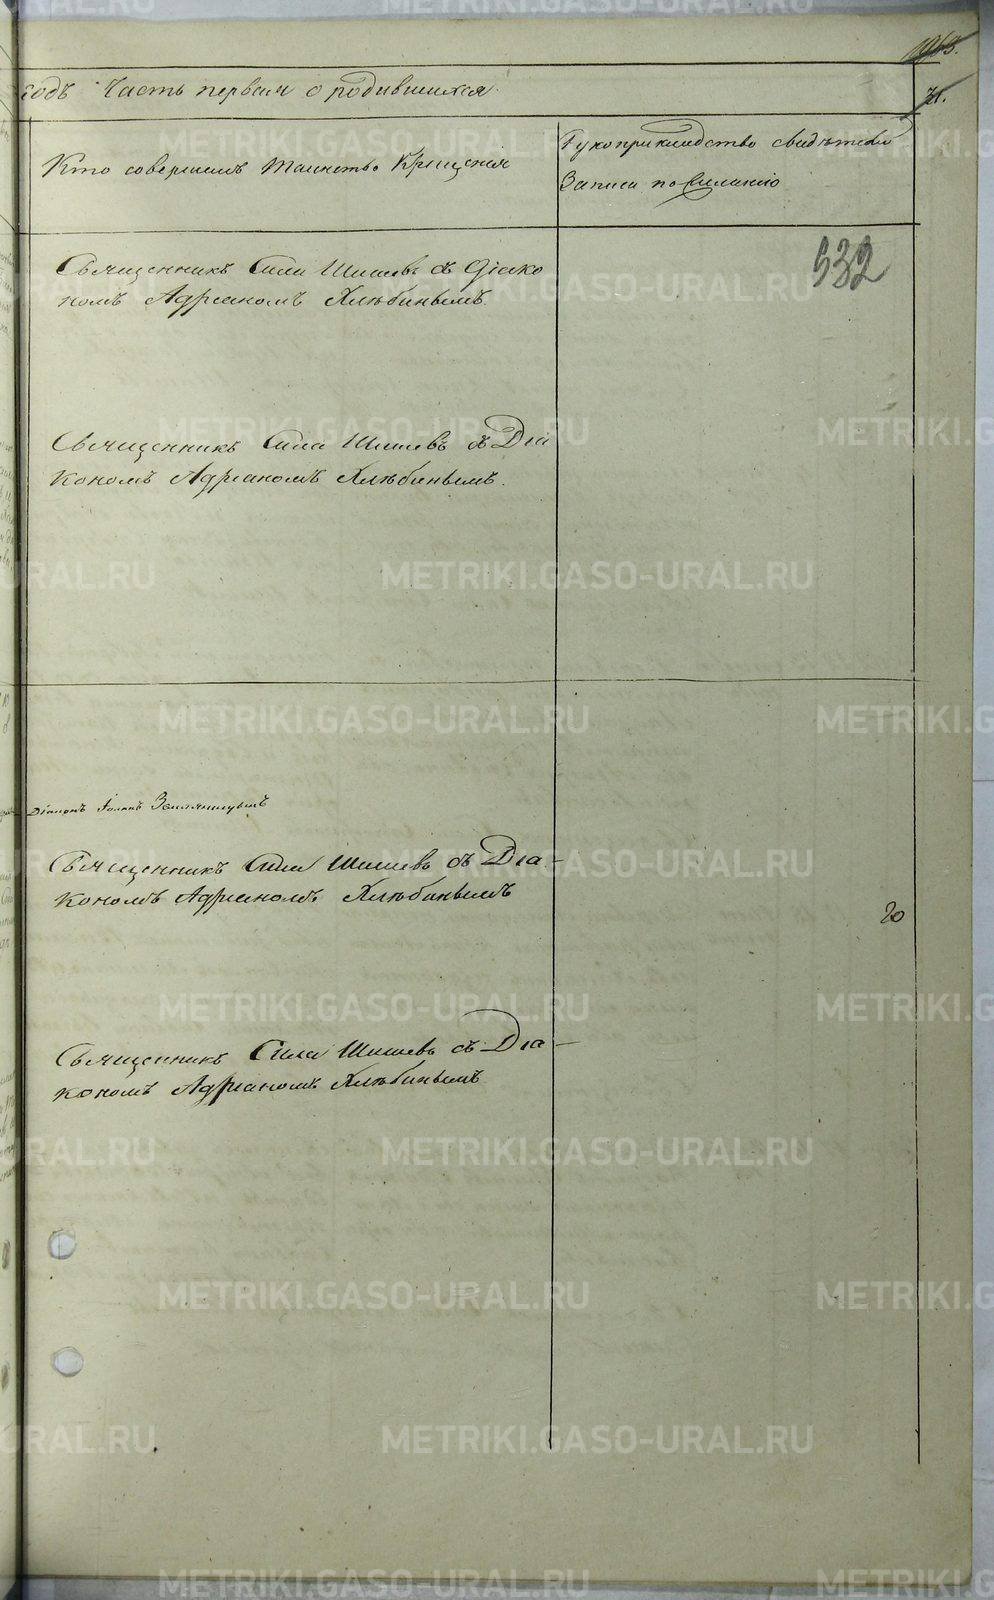 1063.
годъ Часть первая о родившихся.
71.
Кто совершалъ таинство Крещенія
Рукоприкладство свидѣтелей
записи по желанію
532
Священникъ Сила Шишевъ съ Діако
номъ Адріаномъ Хлѣбинымъ.
Священникъ Сила Шишевъ съ Діа
кономъ Адріаномъ Хлѣбинымъ.
Діаконъ Іоаннъ Земляницынъ
Священникъ Сила Шишевъ съ Діа-
кономъ Адріаномъ Хлѣбинымъ
20
Священникъ Сила Шишевъ съ Діа-
кономъ Адріаномъ Хлѣбинымъ
METRIKI.GASO-URAL.RU